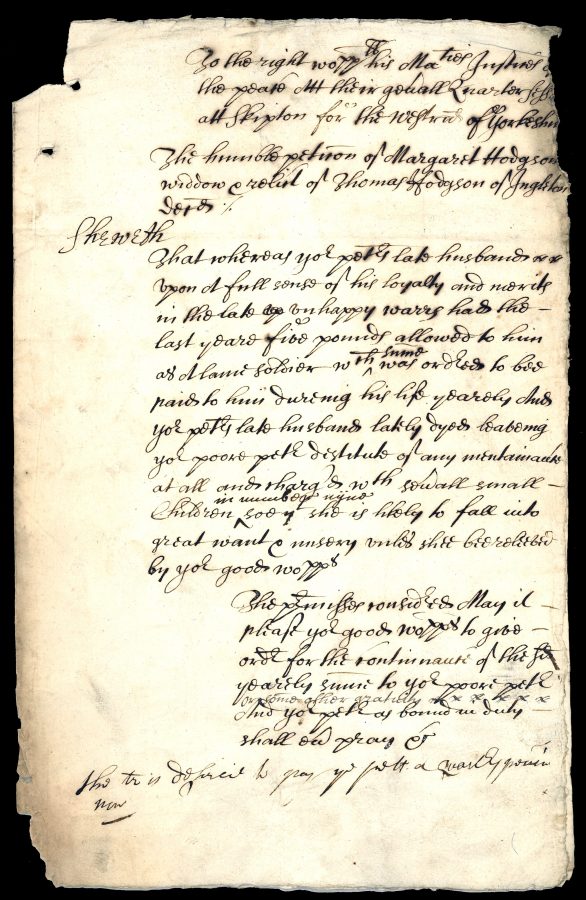 To the right wopp:ll his Ma:ties Justices
the peace Att their gen'all Quarter Sess
att Skipton for the Westrid of Yorkeshi
The humble peticon of Margaret Hodgson
widdow & relict of Thomas Hodgson of Ingleton
Deced
Sheweth
That whereas yo:r pet:rs late husband
upon A full sense of his loyalty and merits
in the late vnhappy warrs had the
last yeare five pounds allowed to him
as A lame soldier w:th summe was ordred to bee
paid to him dureing his life yearely And
yo:r pet:rs late husband lately dyed leaveing
yo:r poore pet:r destitute of any mentainance
at all and charg'd w:th sev'all small
Children in number nyne soe y:t she is likely to fall into
great want & misery unles shee bee releeved
by yo:r good wopps
The p:rmisses considred May it
please yo:r good wopps to give
ord:r for the continuance of the sd
yearely summe to yo:r poore pet:r
or some other gratuity
And yo:r pet:r as bound in duty
shall ev:r pray &c
the tr is desired to pay ye pet:r a
now